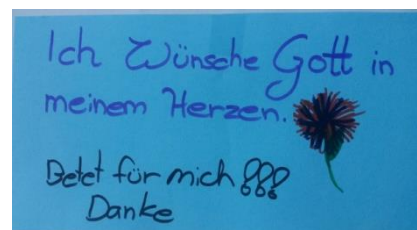 Ich Wünsche Gott in
meinem Herzen.
Betet für mich !!!
Danke